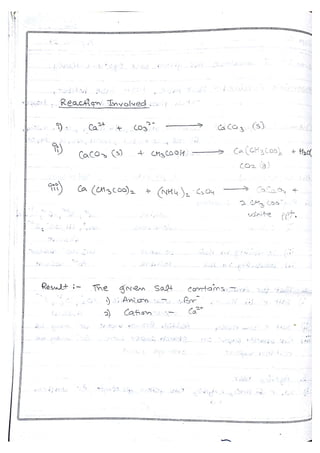 Reaction Involved
i) Ca²⁺ + CO₃²⁻ ⟶ CaCO₃ (s)
ii) CaCO₃ (s) + CH₃COOH ⟶ Ca(CH₃COO)₂ + H₂O
CO₂ (g)
iii) Ca (CH₃COO)₂ + (NH4)₂ C₂O₄ ⟶ CaC₂O₄ +
2 CH₃COO⁻
white ppt.
Result :- The given salt contains :-
1) Anion - Br⁻
2) Cation - Ca²⁺